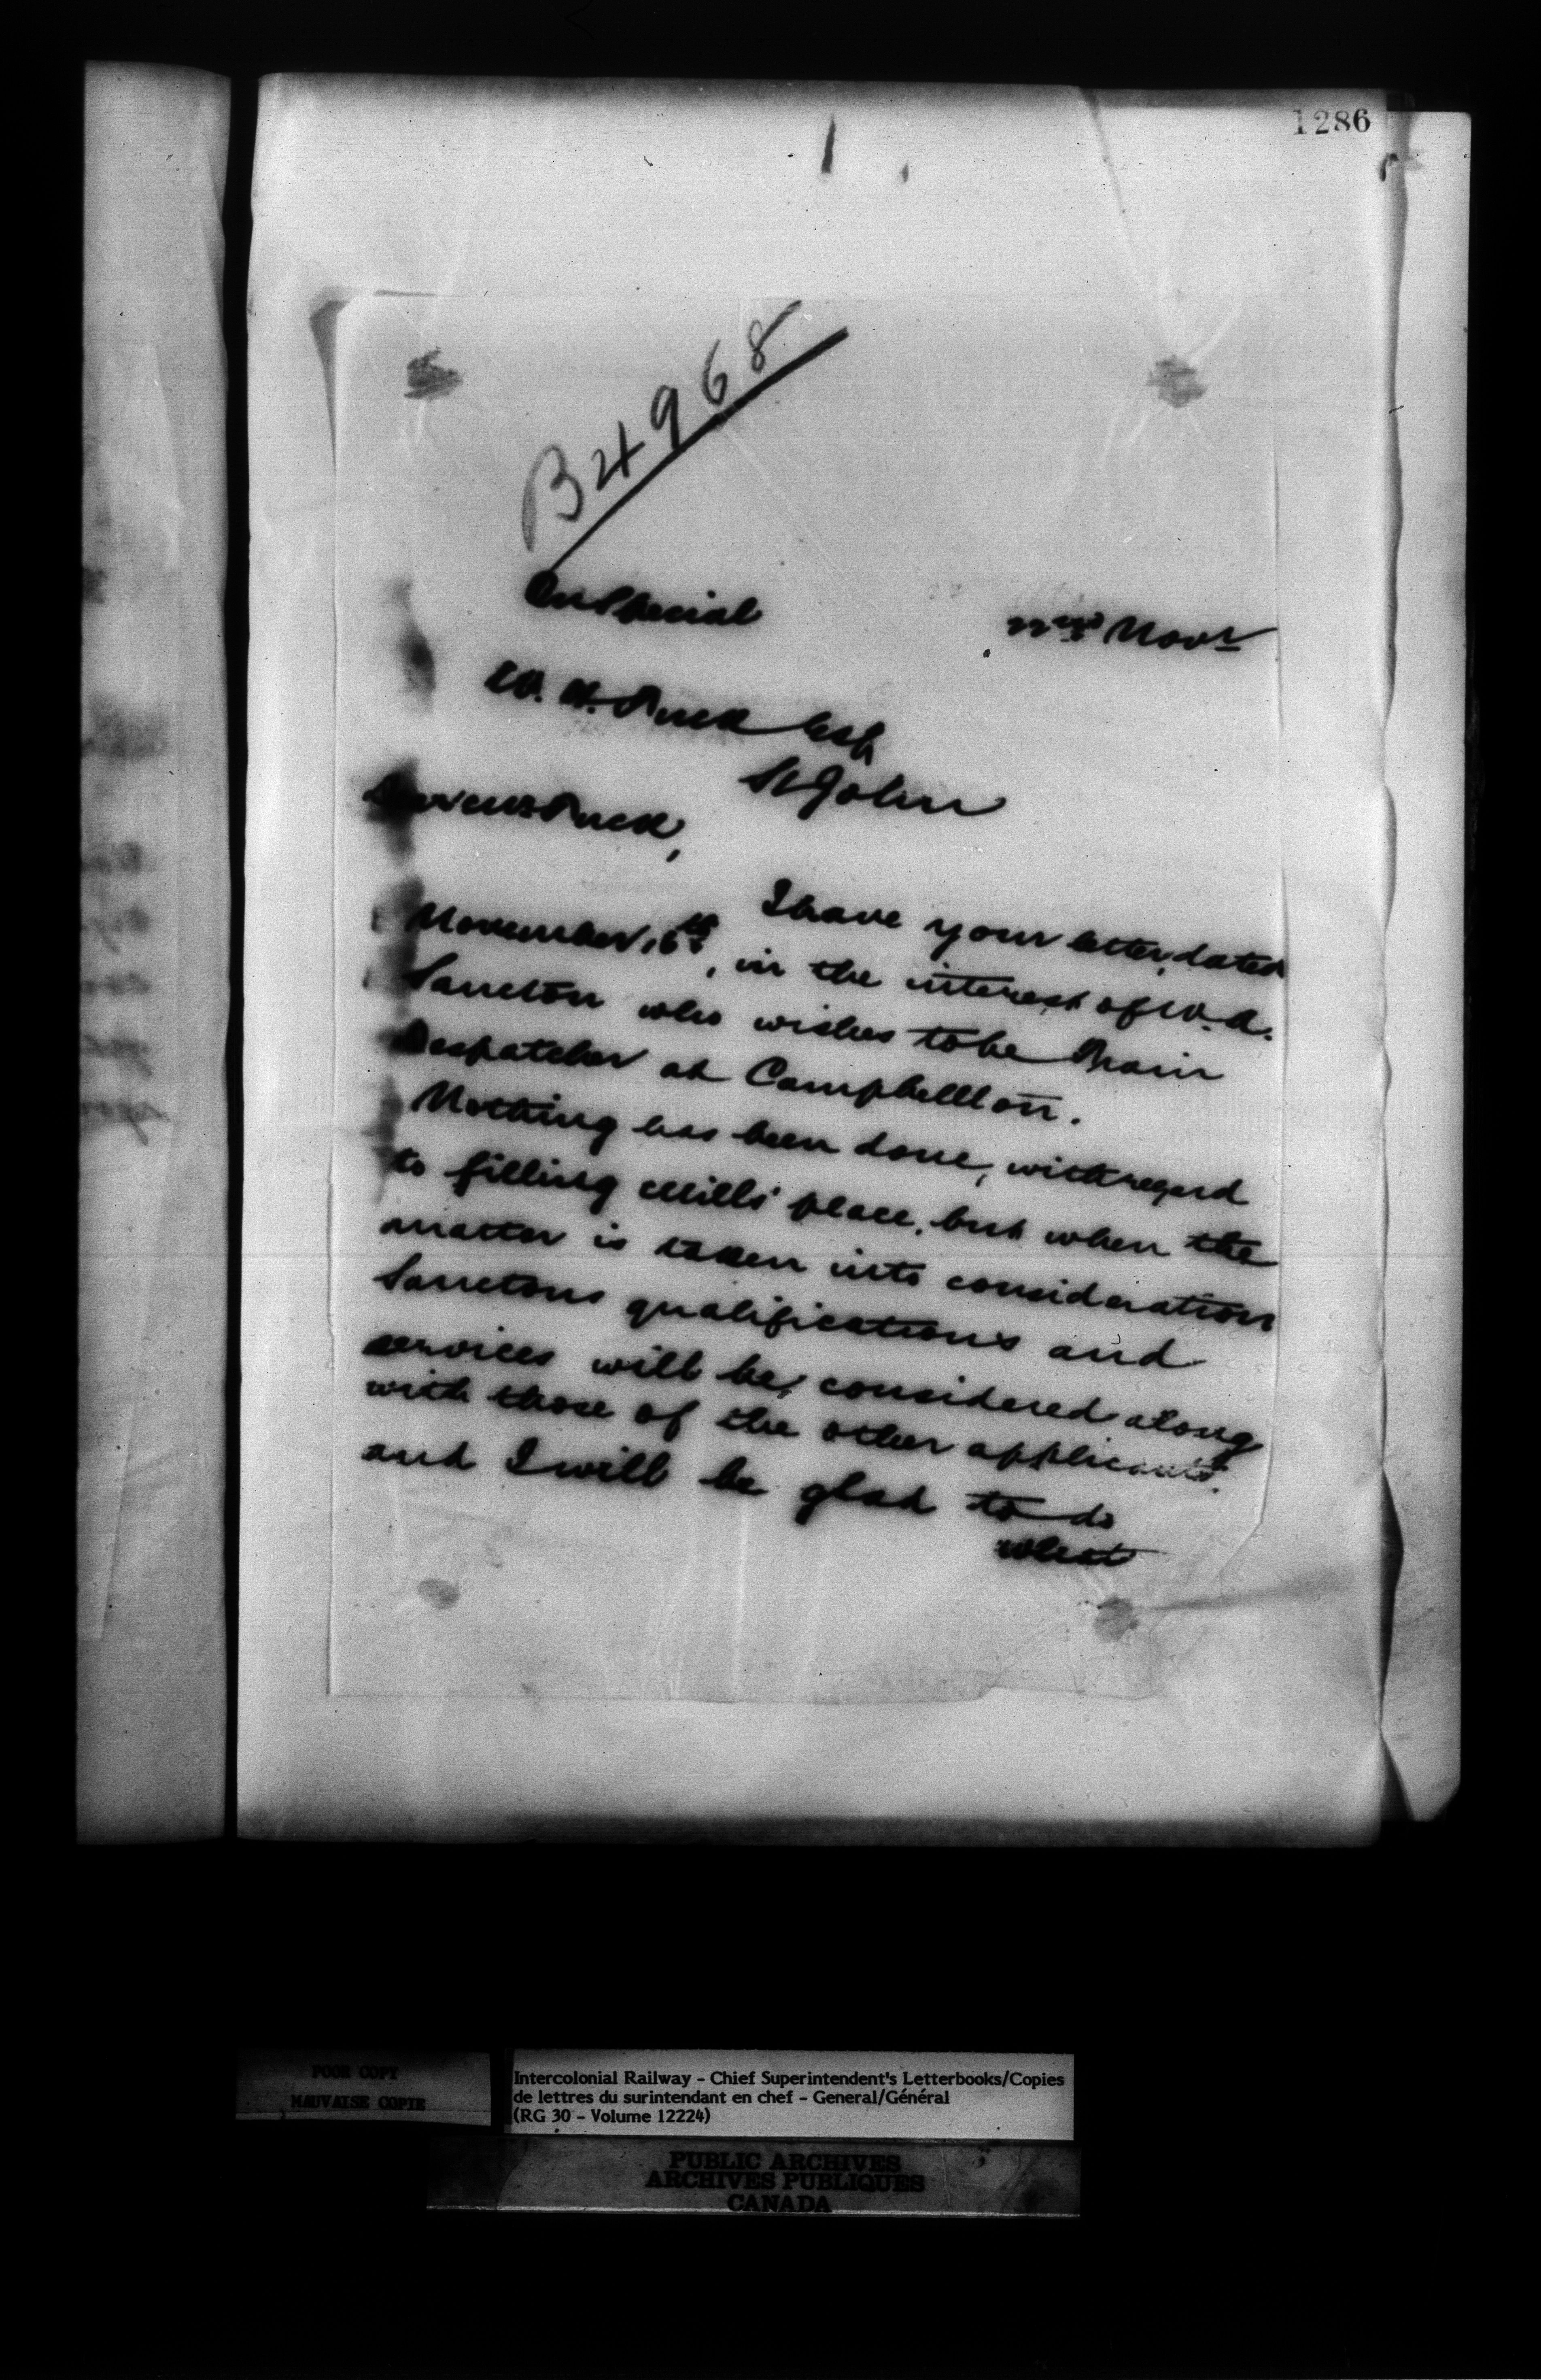 1286
B4968
On Special
22nd Novr
W. H. Tuck Esq
St John
Dear Mr Tuck,
I have your letter, dated
November 16th, in the interest of W. A.
Sancton who wishes to be Train
Despatcher at Campbellton.
Nothing has been done, with regard
to filling Mills' place, but when the
matter is taken into consideration
Sanctons qualifications and
services will be, considered along
with those of the other applicants.
and I will be glad to do
what
POOR COPY
MAUVAISE COPIE
Intercolonial Railway - Chief Superintendent's Letterbooks/Copies
de lettres du surintendant en chef - General/Général
(RG 30 - Volume 12224)
PUBLIC ARCHIVES
ARCHIVES PUBLIQUES
CANADA